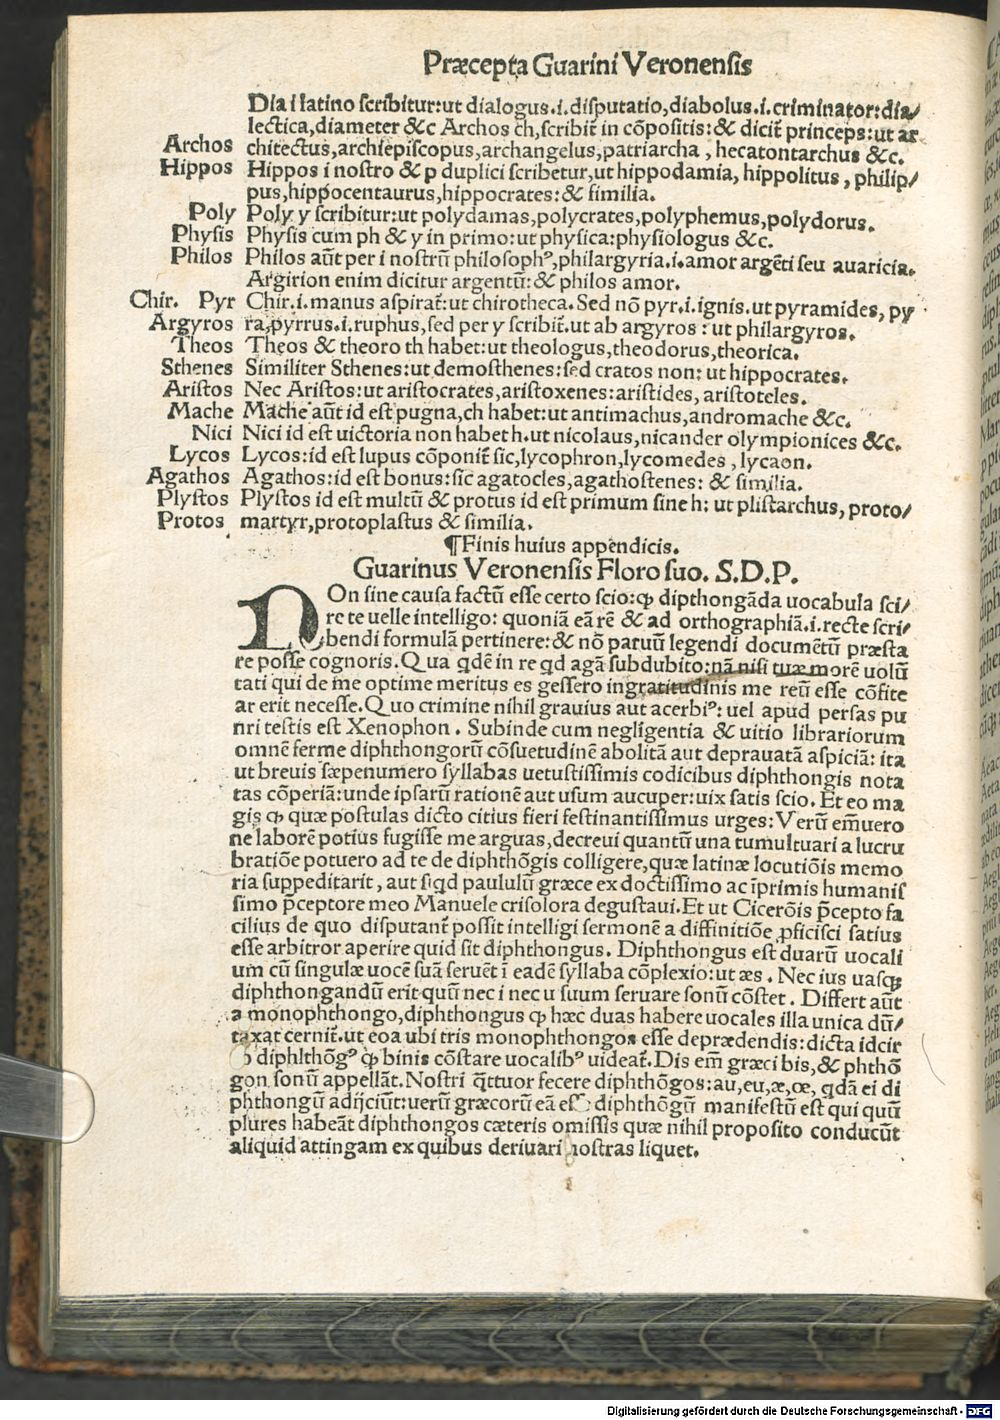 Præcepta Guarini Veronensis
Dia i latino scribitur:ut dialogus.i.disputatio,diabolus.i.criminator:dia/
lectica,diameter &c Archos ch,scribit̄ in cōpositis:& dicit̄ princeps:ut ar
Archos chitectus,archiepiscopus,archangelus,patriarcha , hecatontarchus &c.
Hippos Hippos i nostro & p duplici scribetur,ut hippodamia, hippolitus , philip/
pus,hippocentaurus,hippocrates:& similia.
Poly Poly y scribitur:ut polydamas,polycrates,polyphemus,polydorus.
Physis Physis cum ph & y in primo:ut physica:physiologus &c.
Philos Philos aūt per i nostrū philosophꝰ,philargyria.i.amor argēti seu auaricia.
Argirion enim dicitur argentū:& philos amor.
Chir. Pyr Chir.i.manus aspirat̄:ut chirotheca. Sed nō pyr.i.ignis.ut pyramides, py
Argyros ra,pyrrus.i.ruphus,sed per y scribit̄.ut ab argyros : ut philargyros.
Theos Theos & theoro th habet:ut theologus,theodorus,theorica.
Sthenes Similiter Sthenes:ut demosthenes:sed cratos non: ut hippocrates.
Aristos Nec Aristos:ut aristocrates,aristoxenes:aristides, aristoteles.
Mache Mache aūt id est pugna,ch habet:ut antimachus,andromache &c.
Nici Nici id est uictoria non habet h.ut nicolaus,nicander olympionices &c.
Lycos Lycos:id est lupus cōponit̄ sic,lycophron,lycomedes , lycaon.
Agathos Agathos:id est bonus:sic agatocles,agathostenes: & similia.
Plystos Plystos id est multū & protus id est primum sine h: ut plistarchus, proto/
Protos martyr,protoplastus & similia.
¶Finis huius appendicis.
Guarinus Veronensis Floro suo. S.D.P.
NOn sine causa factū esse certo scio:ꝙ dipthongāda uocabula sci/
re te uelle intelligo: quoniā eā rē & ad orthographiā.i.recte scri/
bendi formulā pertinere:& nō paruū legendi documētū præsta
re posse cognoris.Qua qdē in re qd agā subdubito:nā nisi tuæ morē uolū
tati qui de me optime meritus es gessero ingratitudinis me reū esse cōfite
ar erit necesse.Quo crimine nihil grauius aut acerbiꝰ: uel apud persas pu
niri testis est Xenophon . Subinde cum negligentia & uitio librariorum
omnē ferme diphthongorū cōsuetudinē abolitā aut deprauatā aspiciā: ita
ut breuis sæpenumero syllabas uetustissimis codicibus diphthongis nota
tas cōperiā:unde ipsarū rationē aut usum aucuper:uix satis scio. Et eo ma
gis ꝙ quæ postulas dicto citius fieri festinantissimus urges: Verū em̄uero
ne laborē potius fugisse me arguas,decreui quantū una tumultuari a lucru
bratiōe potuero ad te de diphthōgis colligere,quæ latinæ locutiōis memo
ria suppeditarit, aut siqd paululū græce ex doctissimo ac īprimis humanis
simo p̄ceptore meo Manuele crisolora degustaui.Et ut Cicerōis p̄cepto fa
cilius de quo disputant̄ possit intelligi sermonē a diffinitiōe ꝓficisci satius
esse arbitror aperire quid sit diphthongus. Diphthongus est duarū uocali
um cū singulæ uocē suā seruēt ī eadē syllaba cōplexio:ut æs . Nec ius uasqꝫ
diphthongandū erit quū nec i nec u suum seruare sonū cōstet . Differt aūt
a monophthongo,diphthongus ꝙ hæc duas habere uocales illa unica dū/
taxat cernit̄.ut eoa ubi tris monophthongos esse deprædendis:dicta idcir
diphthōgꝰ ꝙ binis cōstare uocalibꝰ uideat̄.Dis em̄ græci bis,& phthō
gon sonū appellāt.Nostri q̄ttuor fecere diphthōgos:au,eu,æ,œ, qdā ei di
phthongū adijciūt:uerū græcorū eā diphthōgū manifestū est qui quū
plures habeāt diphthongos cæteris omissis quæ nihil proposito conducūt
aliquid attingam ex quibus deriuari nostras liquet.
Digitalisierung gefördert durch die Deutsche Forschungsgemeinschaft - DFG